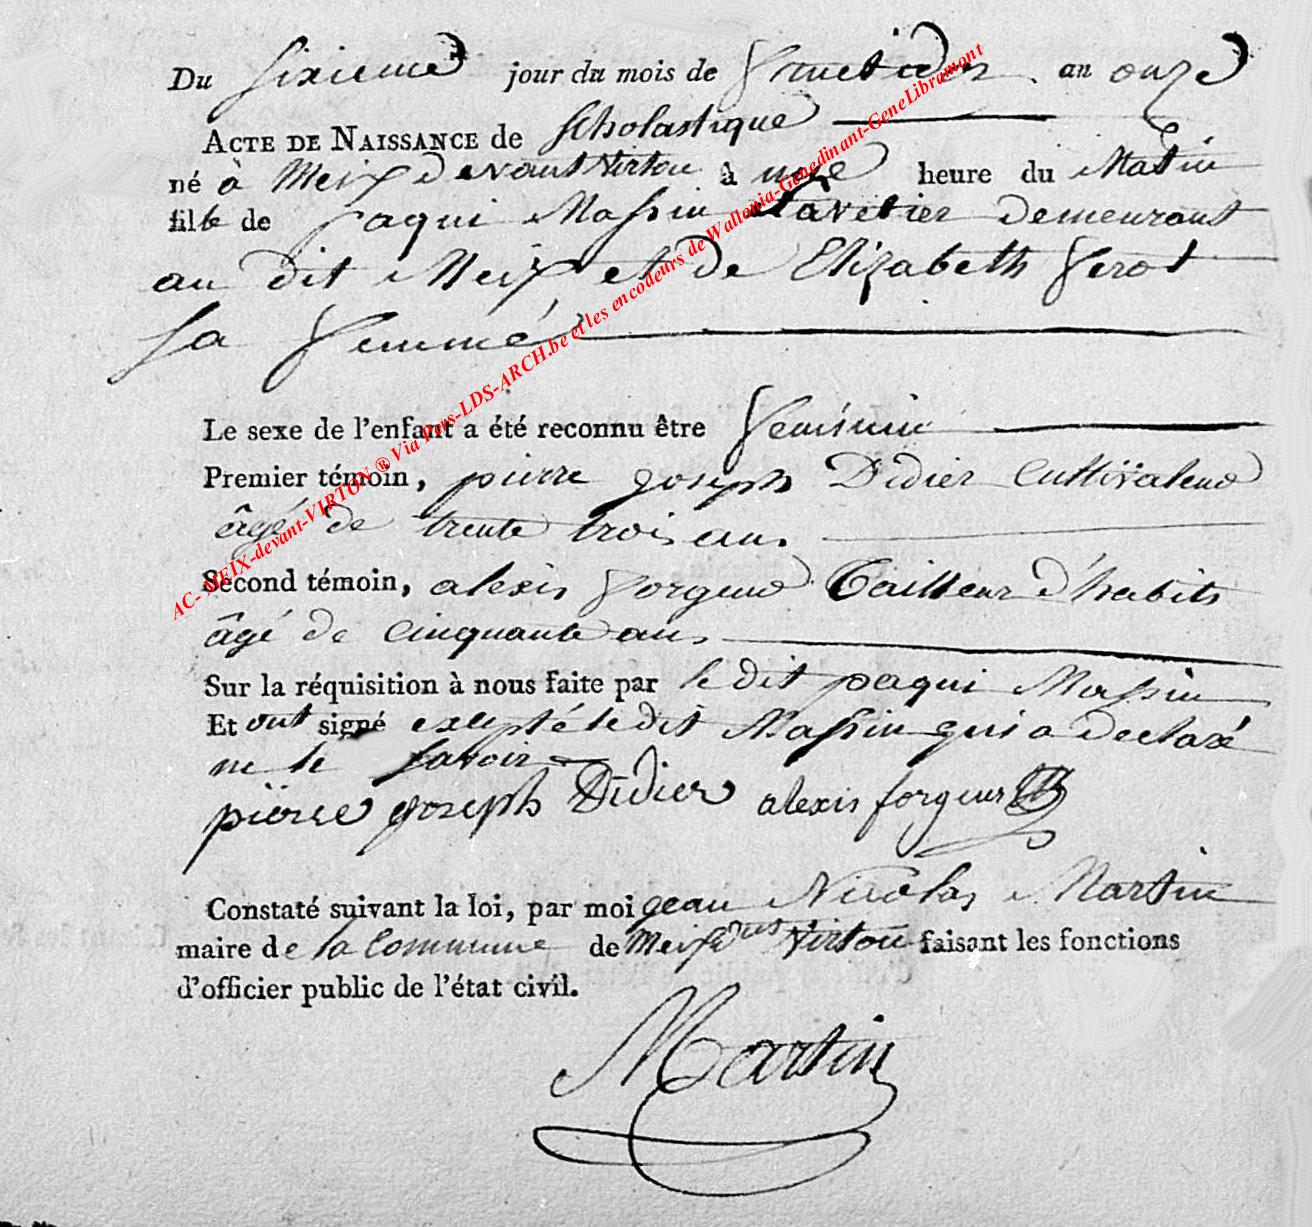 Du sixieme jour du mois de fructidor an onze
ACTE DE NAISSANCE de Scholastique
né à Meix devant Virton à une heure du Matin
fille de paqui Massin Savetier demeurant
au dit Meix et de Elizabeth
sa femme
Le sexe de l'enfant a été reconnu être feminin
Premier témoin, pierre joseph Didier Cultivateur
âgé de trente trois ans.
Second témoin, alexis forgeur Tailleur d'habits
âgé de Cinquante ans
Sur la réquisition à nous faite par le dit paqui Massin
Et ont signé excepté le dit Massin qui a declaré
ne le savoir
pierre joseph Didier alexis forgeur
Constaté suivant la loi, par moi jean Nicolas Martin
maire de la Commune de Meix dvt Virton faisant les fonctions
d'officier public de l'état civil.
Martin
AC- MEIX-devant-VIRTON ® Via Pers-LDS-ARCH.be et les encodeurs de Wallonia-Genedinant-GeneLibramont